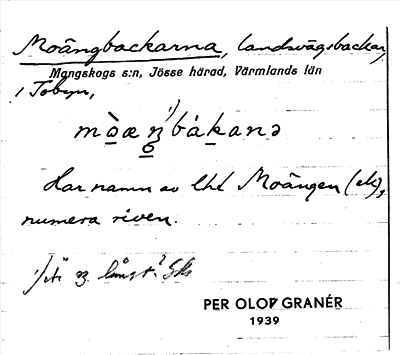 Moängbackarna, landsvägsbackar,
Mangskogs s:n, Jösse härad, Värmlands län
i Tobyn,
1)
mòæŋbákanə
Har namn av lht Moängen (ek),
numera riven.
1) är ŋ långt? Sks
PER OLOF GRANÉR
1939